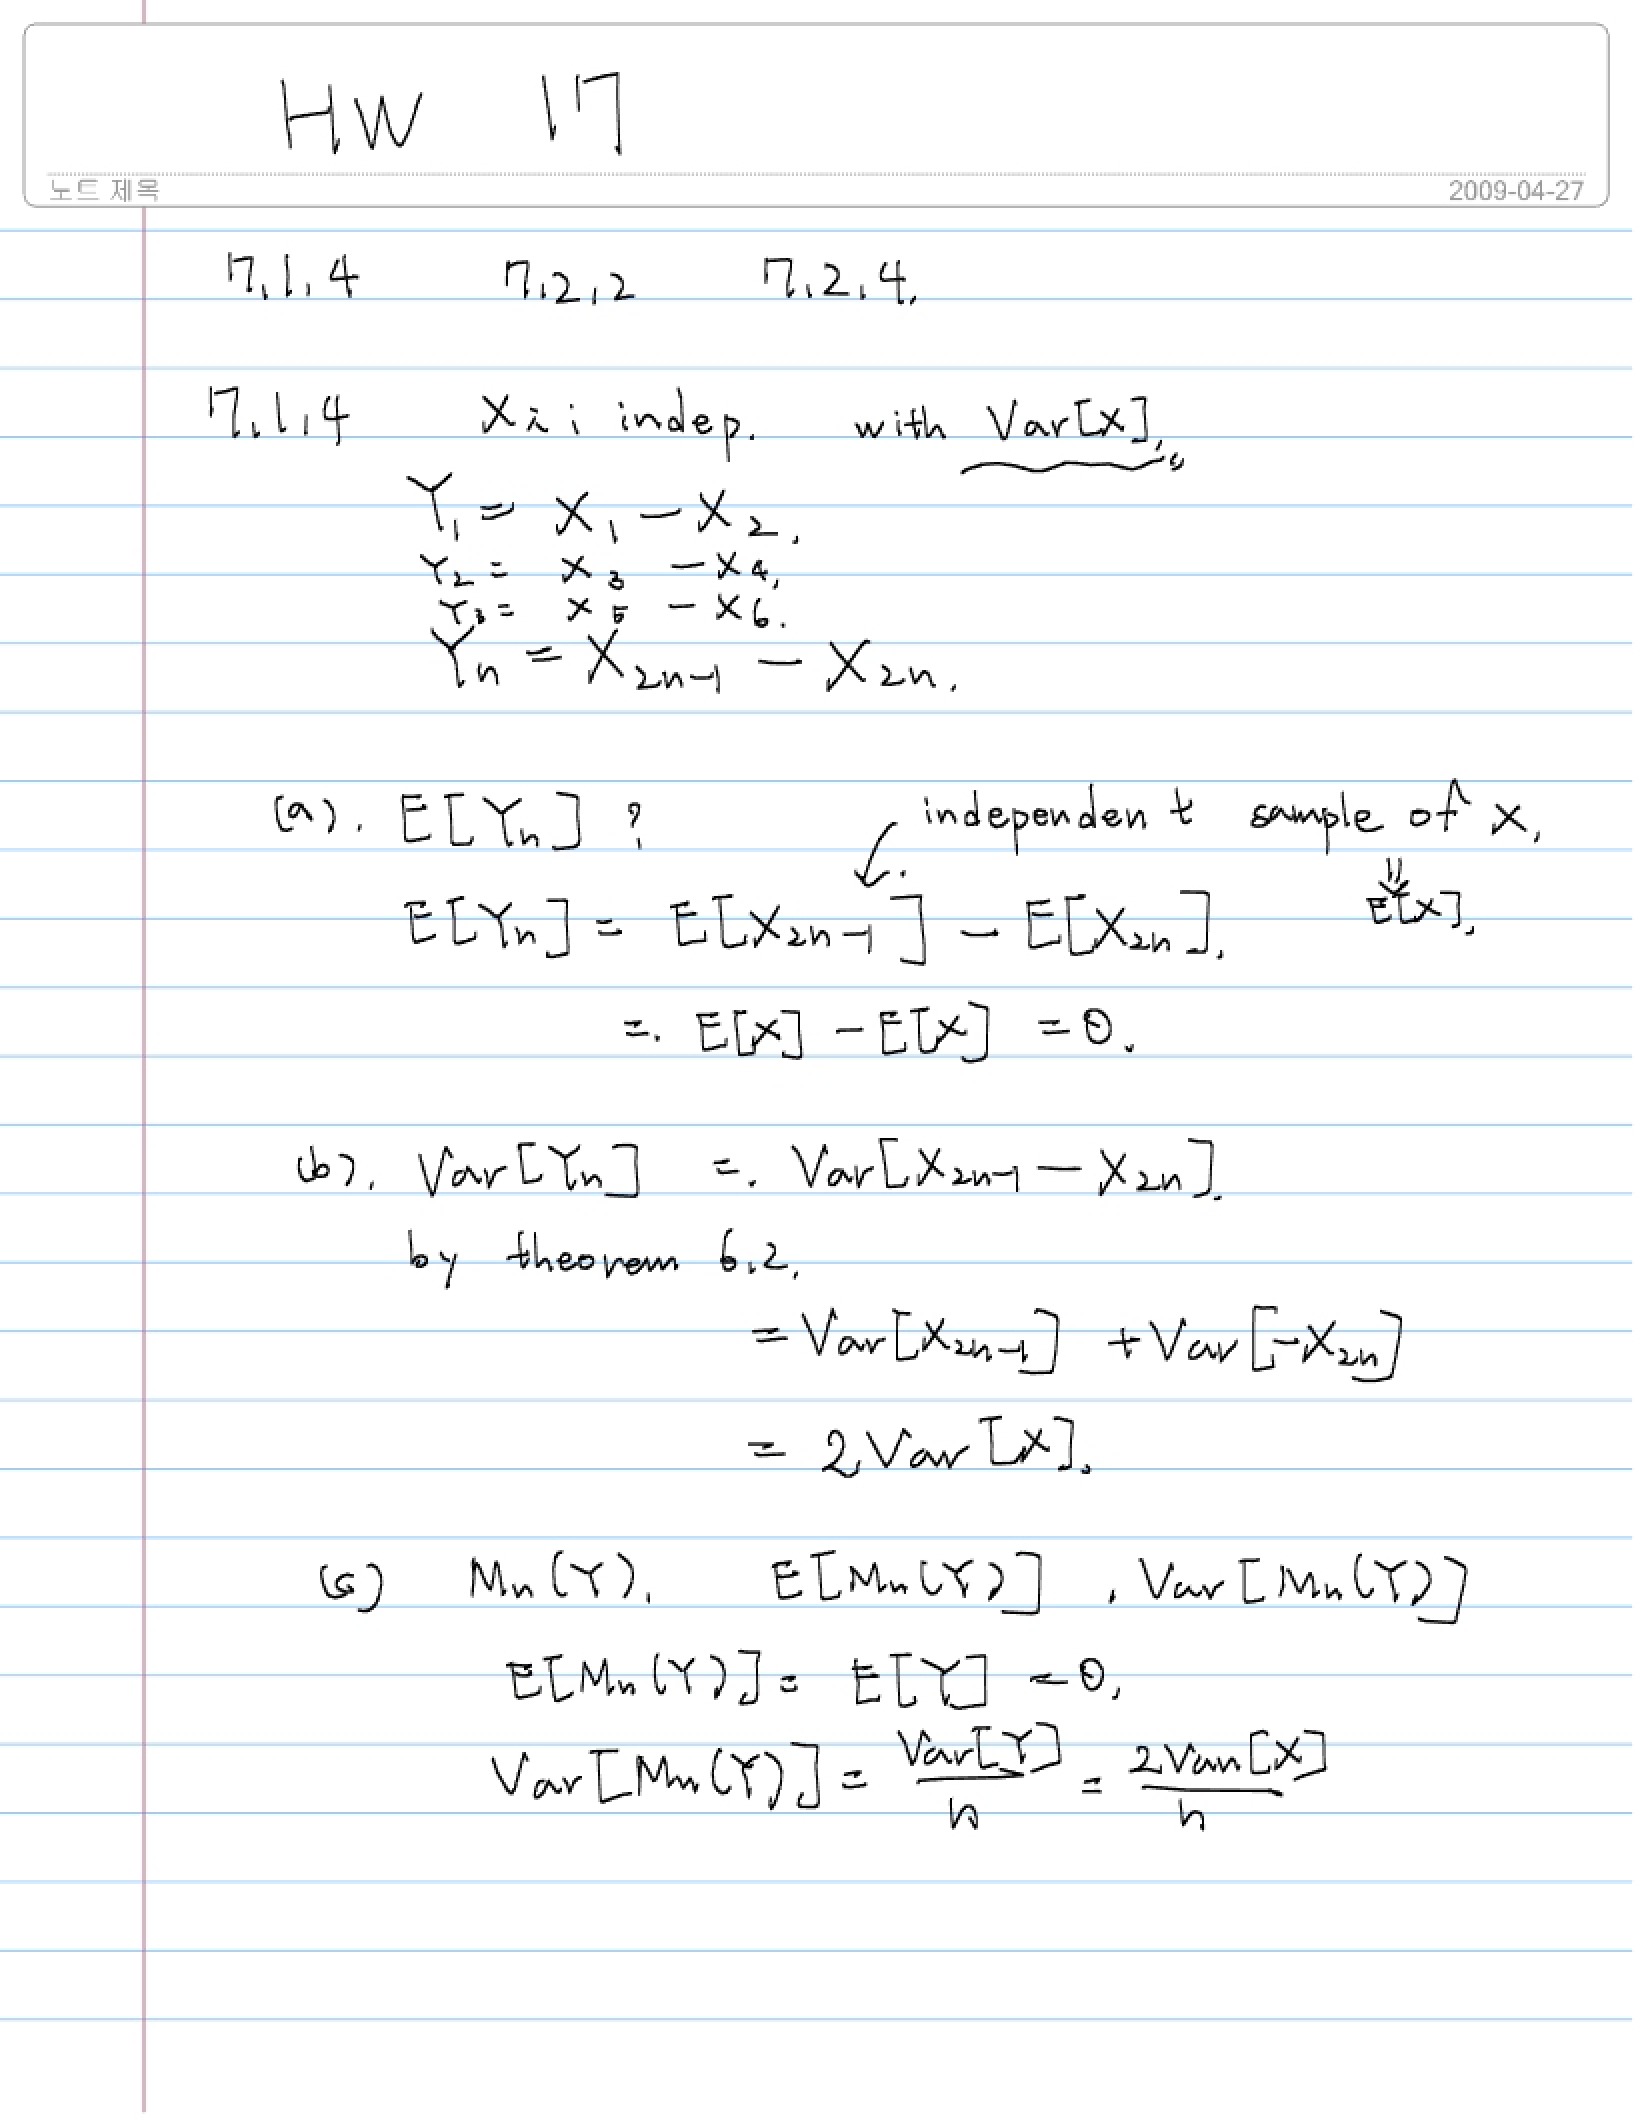 HW 17
노트 제목 2009-04-27
7.1.4 7.2.2 7.2.4.
7.1.4 Xi ; indep. with Var[X].
Y₁ = X₁ - X₂.
Y₂ = X₃ - X₄.
Y₃ = X₅ - X₆.
Yn = X₂n₋₁ - X₂n.
(a). E[Yn] ? independent sample of X.
⇓
E[X].
E[Yn] = E[X₂n₋₁] - E[X₂n].
=. E[X] - E[X] = 0.
(b). Var[Yn] =. Var[X₂n₋₁ - X₂n].
by theorem 6.2.
= Var[X₂n₋₁] + Var[-X₂n]
= 2Var[X].
(c) Mn(Y). E[Mn(Y)] , Var[Mn(Y)]
E[Mn(Y)] = E[Y] = 0.
Var[Mn(Y)] = Var[Y]/n = 2Var[X]/n